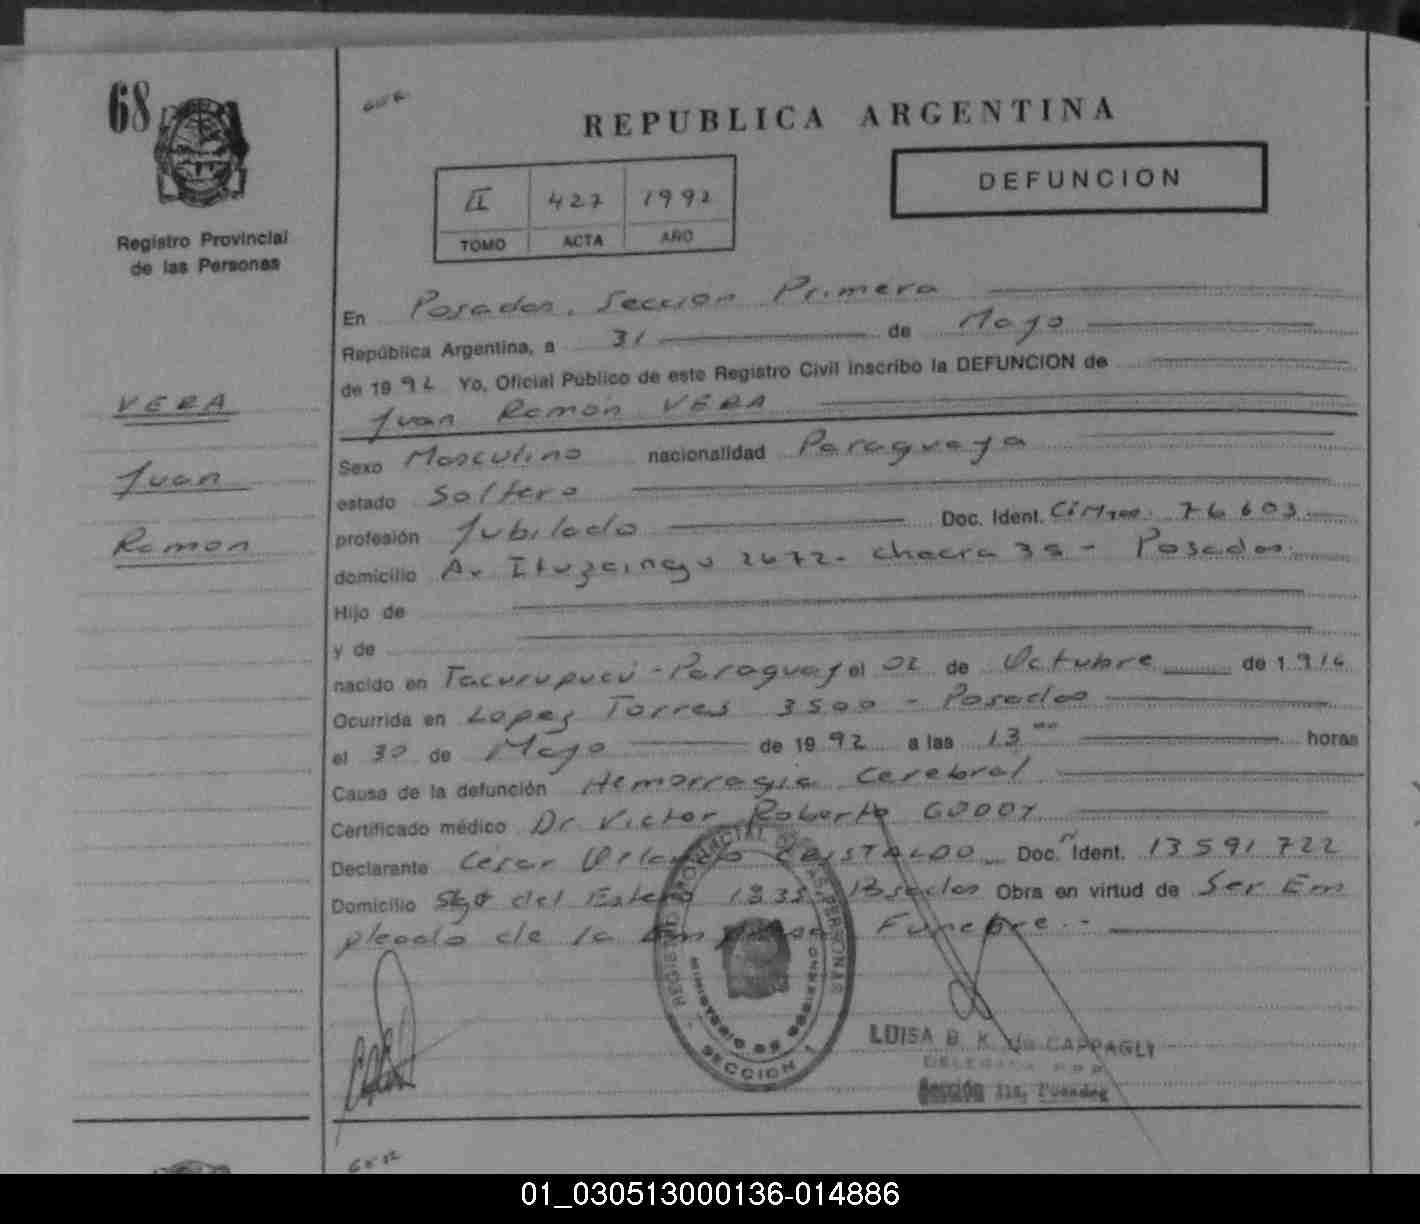 68
REPUBLICA ARGENTINA
DEFUNCION
II 427 1992
TOMO ACTA AÑO
Registro Provincial
de las Personas
VERA
Juan
Ramon
En Posadas, Seccion Primera
República Argentina, a 31 de Mayo
de 1992 Yo, Oficial Público de este Registro Civil inscribo la DEFUNCION de
Juan Ramon VERA
Sexo Masculino nacionalidad Paraguaya
estado Soltero
profesión Jubilado Doc. Ident. 76603
domicilio Av Ituzaingo 2672 - chacra 35 - Posadas
Hijo de
y de
nacido en Tacurupucú - Paraguay el 02 de Octubre de 1.914
Ocurrida en Lopez Torres 3500 - Posadas
el 30 de Mayo de 1992 a las 13 00 horas
Causa de la defunción Hemorragia Cerebral
Certificado médico Dr Victor Roberto GODOY
Declarante César CRISTALDO Doc. Ident. 13591722
Domicilio Sgo del Estero 1835, Posadas Obra en virtud de Ser Em
pleado de la Empresa Funebre.-
REGISTRO PROVINCIAL DE LAS PERSONAS
MINISTERIO DE GOBIERNO
SECCION 1
LUISA B. K. de CAPPAGLI
DELEGADA
Sección 1ra. Posadas
01_030513000136-014886